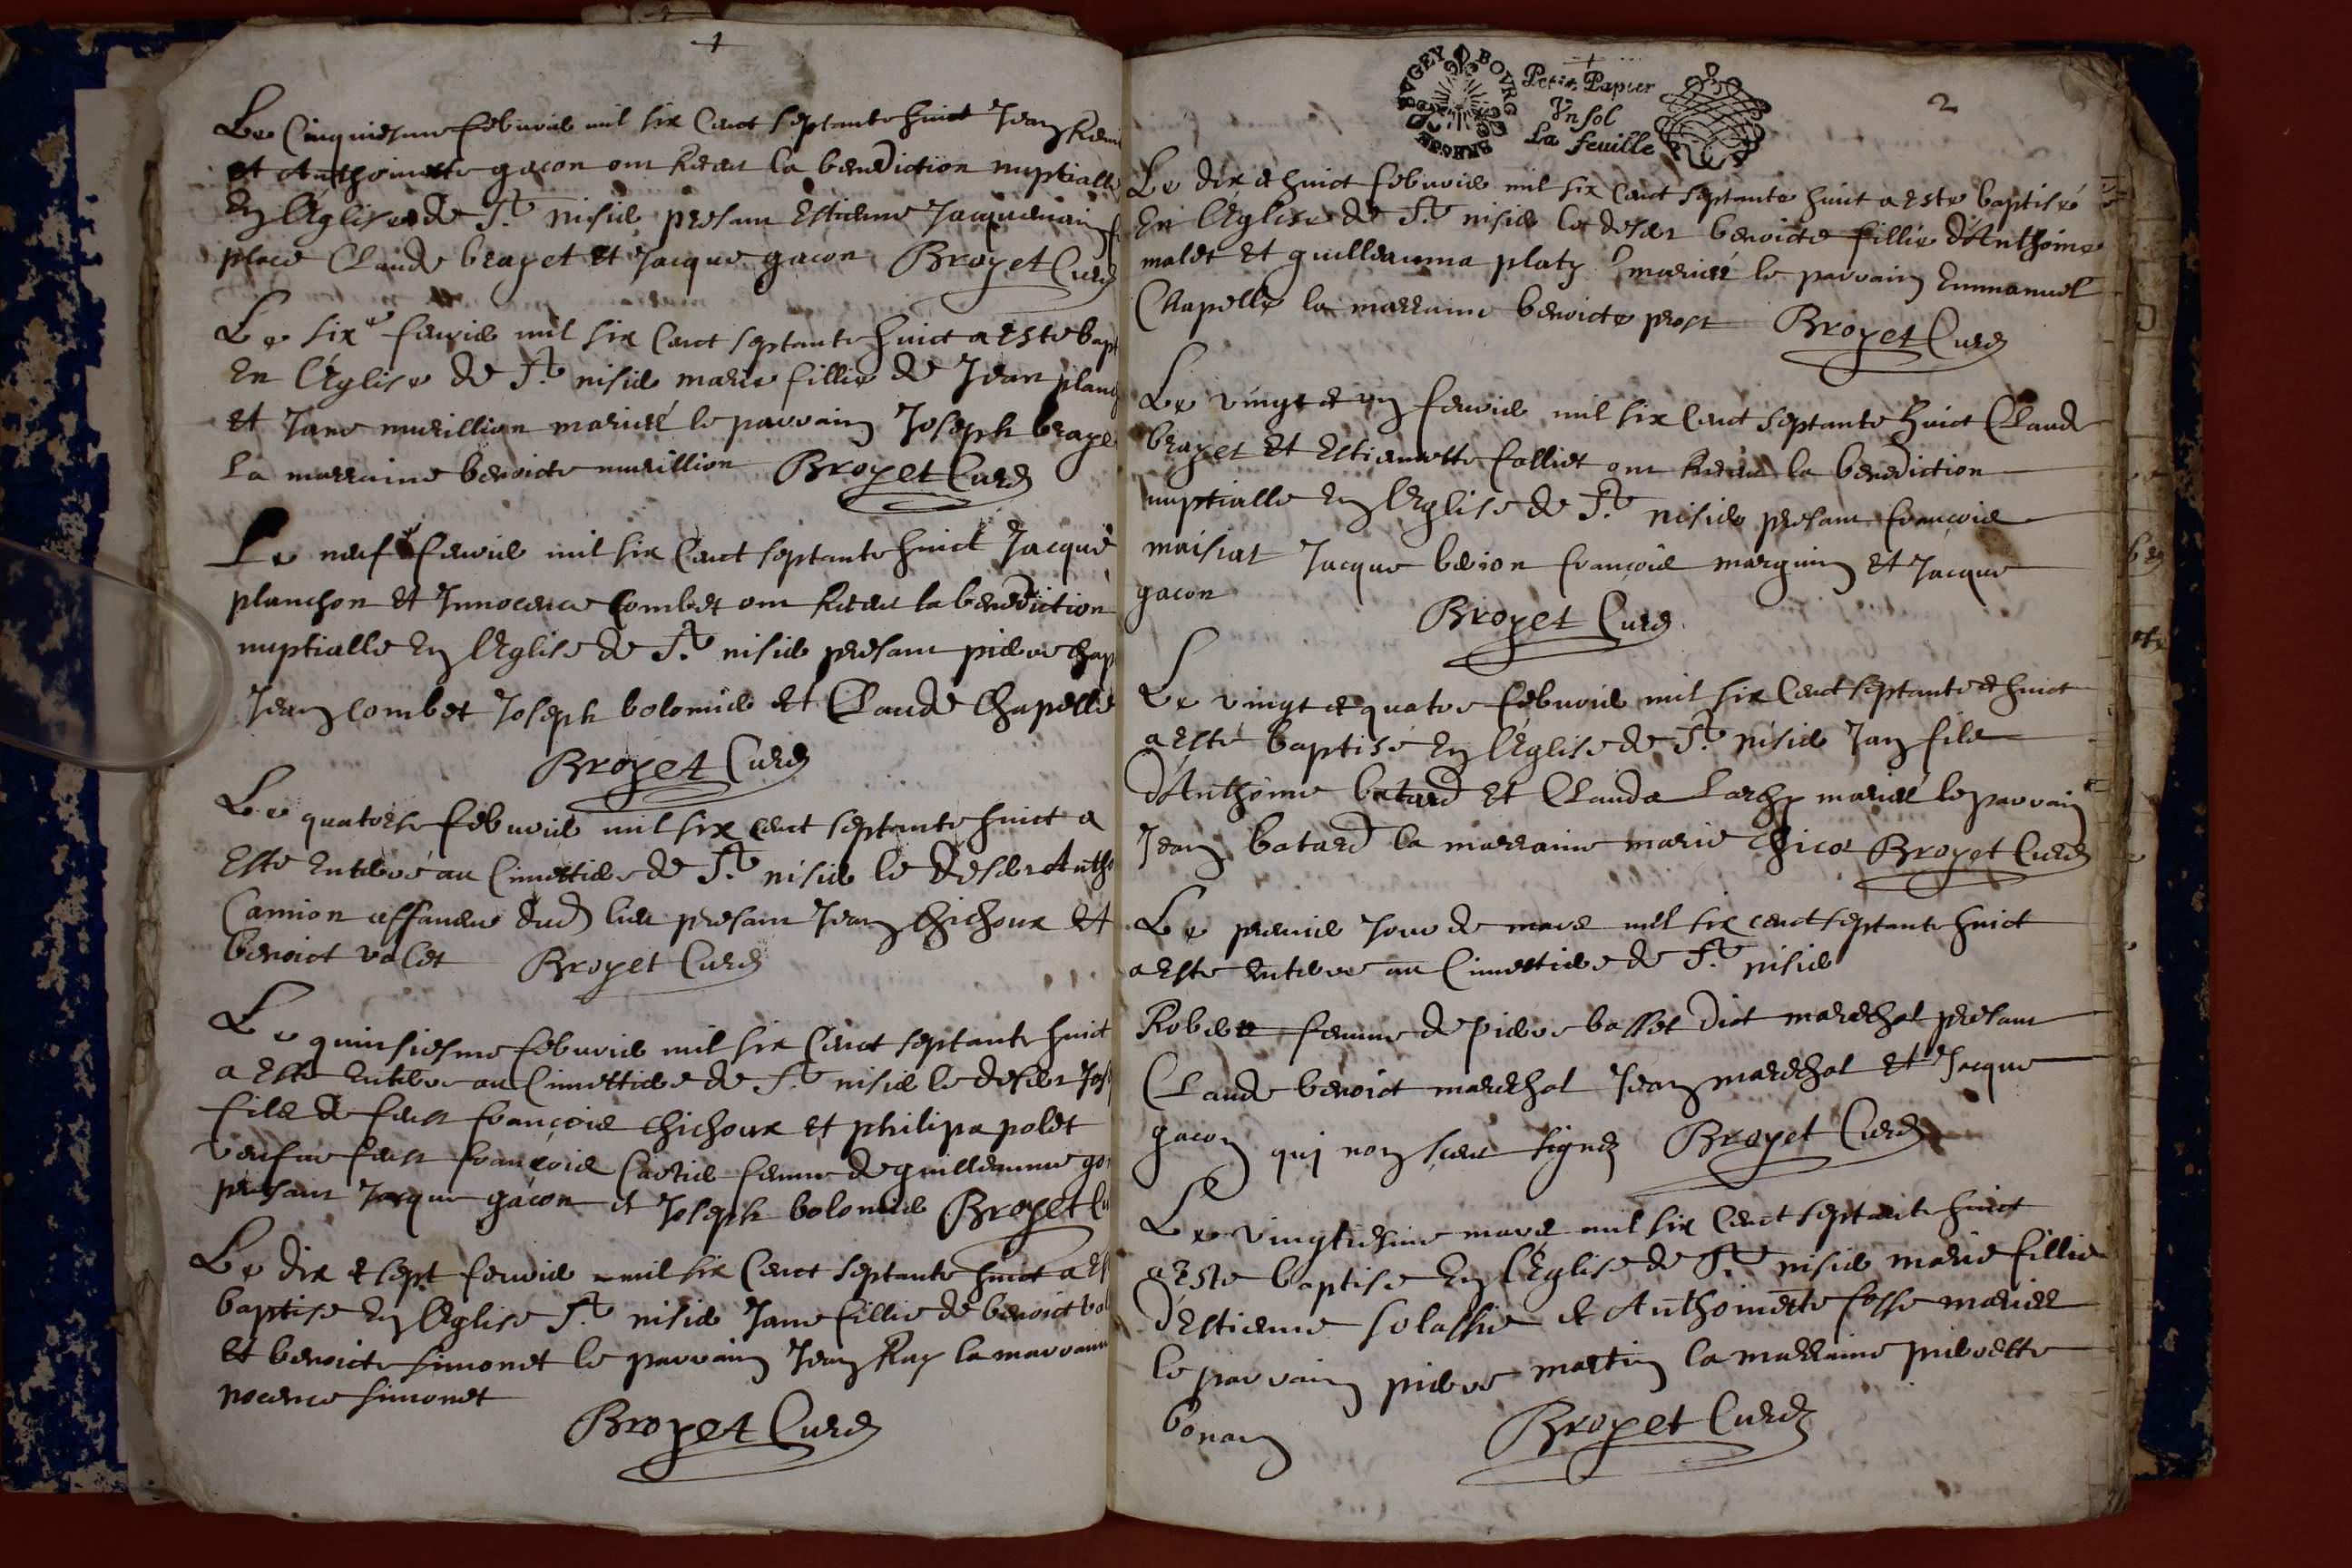 Le Cinquiesme febvrier mil six Cent septante huict Jean
et Anthoinette gacon ont Receu la benediction nuptialle
En l'Eglise de St nisier presant Estienne Jacquemain
place Claude brayet et Jacque gacon Broyet Curé
Le six e fevrier mil six Cent septante huict a este bapt
En l'Eglise de St nisier marie fillie de Jean planc
et Jane murillion mariés le parrain Joseph braye
La marraine benoicte murillion Broyet Curé
Le neuf e fevrier mil six Cent septante huict Jacque
planchon et Innocence Combet ont Receu la benediction
nuptialle En l'Eglise de St nisier presant pierre Chap
Jean Combet Joseph bolomier et Claude Chapelle
Broyet Curé
Le quatorse febvrier mil six cent septante huict a
Este Enterré au Cimettiere de St nisier le deser Antho
Camion affaneur dud lieu presant Jean Chichoux et
benoict valet Broyet Curé
Le quinsiesme febvrier mil six Cent septante huict
a Este Enterré au Cimettiere de St nisier le deser Jos
fils de feu françois Chichoux et philipa polet
veufve feu françois Cartier femme de guilleaume go
presant Jacque gacon et Joseph bolomier Broyet Cu
Le dix et sept fevrier mil six Cent septante huict a est
baptise En l'Eglise St nisier Jane fillie de benoict va
et benoicte simonet le parrain Jean Ray la marraine
nocence simonet
Broyet Curé
BOVRG BVGEY
Petit Papier
Vn sol
La feuille
2
Le dix et huict febvrier mil six Cent septante huict a este baptisé
En l'Eglise de St nisier le deser benoicte fillie d'Anthoine
malet et guilleauma platy mariés le parrain Emmanuel
Chapelle la marraine benoicte prost Broyet Curé
Le vingt et un fevrier mil six Cent septante huict Claude
brayet et Estiennette folliet ont Receu la benediction
nuptialle En l'Eglise de St nisier presant françois
maisiat Jacque berion françois marguin et Jacque
gacon
Broyet Curé
Le vingt et quatre febvrier mil six Cent septante et huict
a Esté baptisé En l'Eglise de St nisier Jan fils
d'Anthoine batard et Clauda Larchy mariés le parrain
Jean batard la marraine marie Chico Broyet Curé
Le premier Jour de mars mil six cent septante huict
a Este enterré au Cimettiere de St nisier
Robert femme de pierre basset dict marechal presant
Claude benoict marechal Jean marechal et Jacque
gacon qui non sceu signer Broyet Curé
Le vingtiesme mars mil six Cent septante huict
a este baptise En l'Eglise de St nisier marie fillie
d'Estienne solassie et Anthoinette fosse mariés
le parrain pierre martin la marraine pierrette
bonan
Broyet Curé